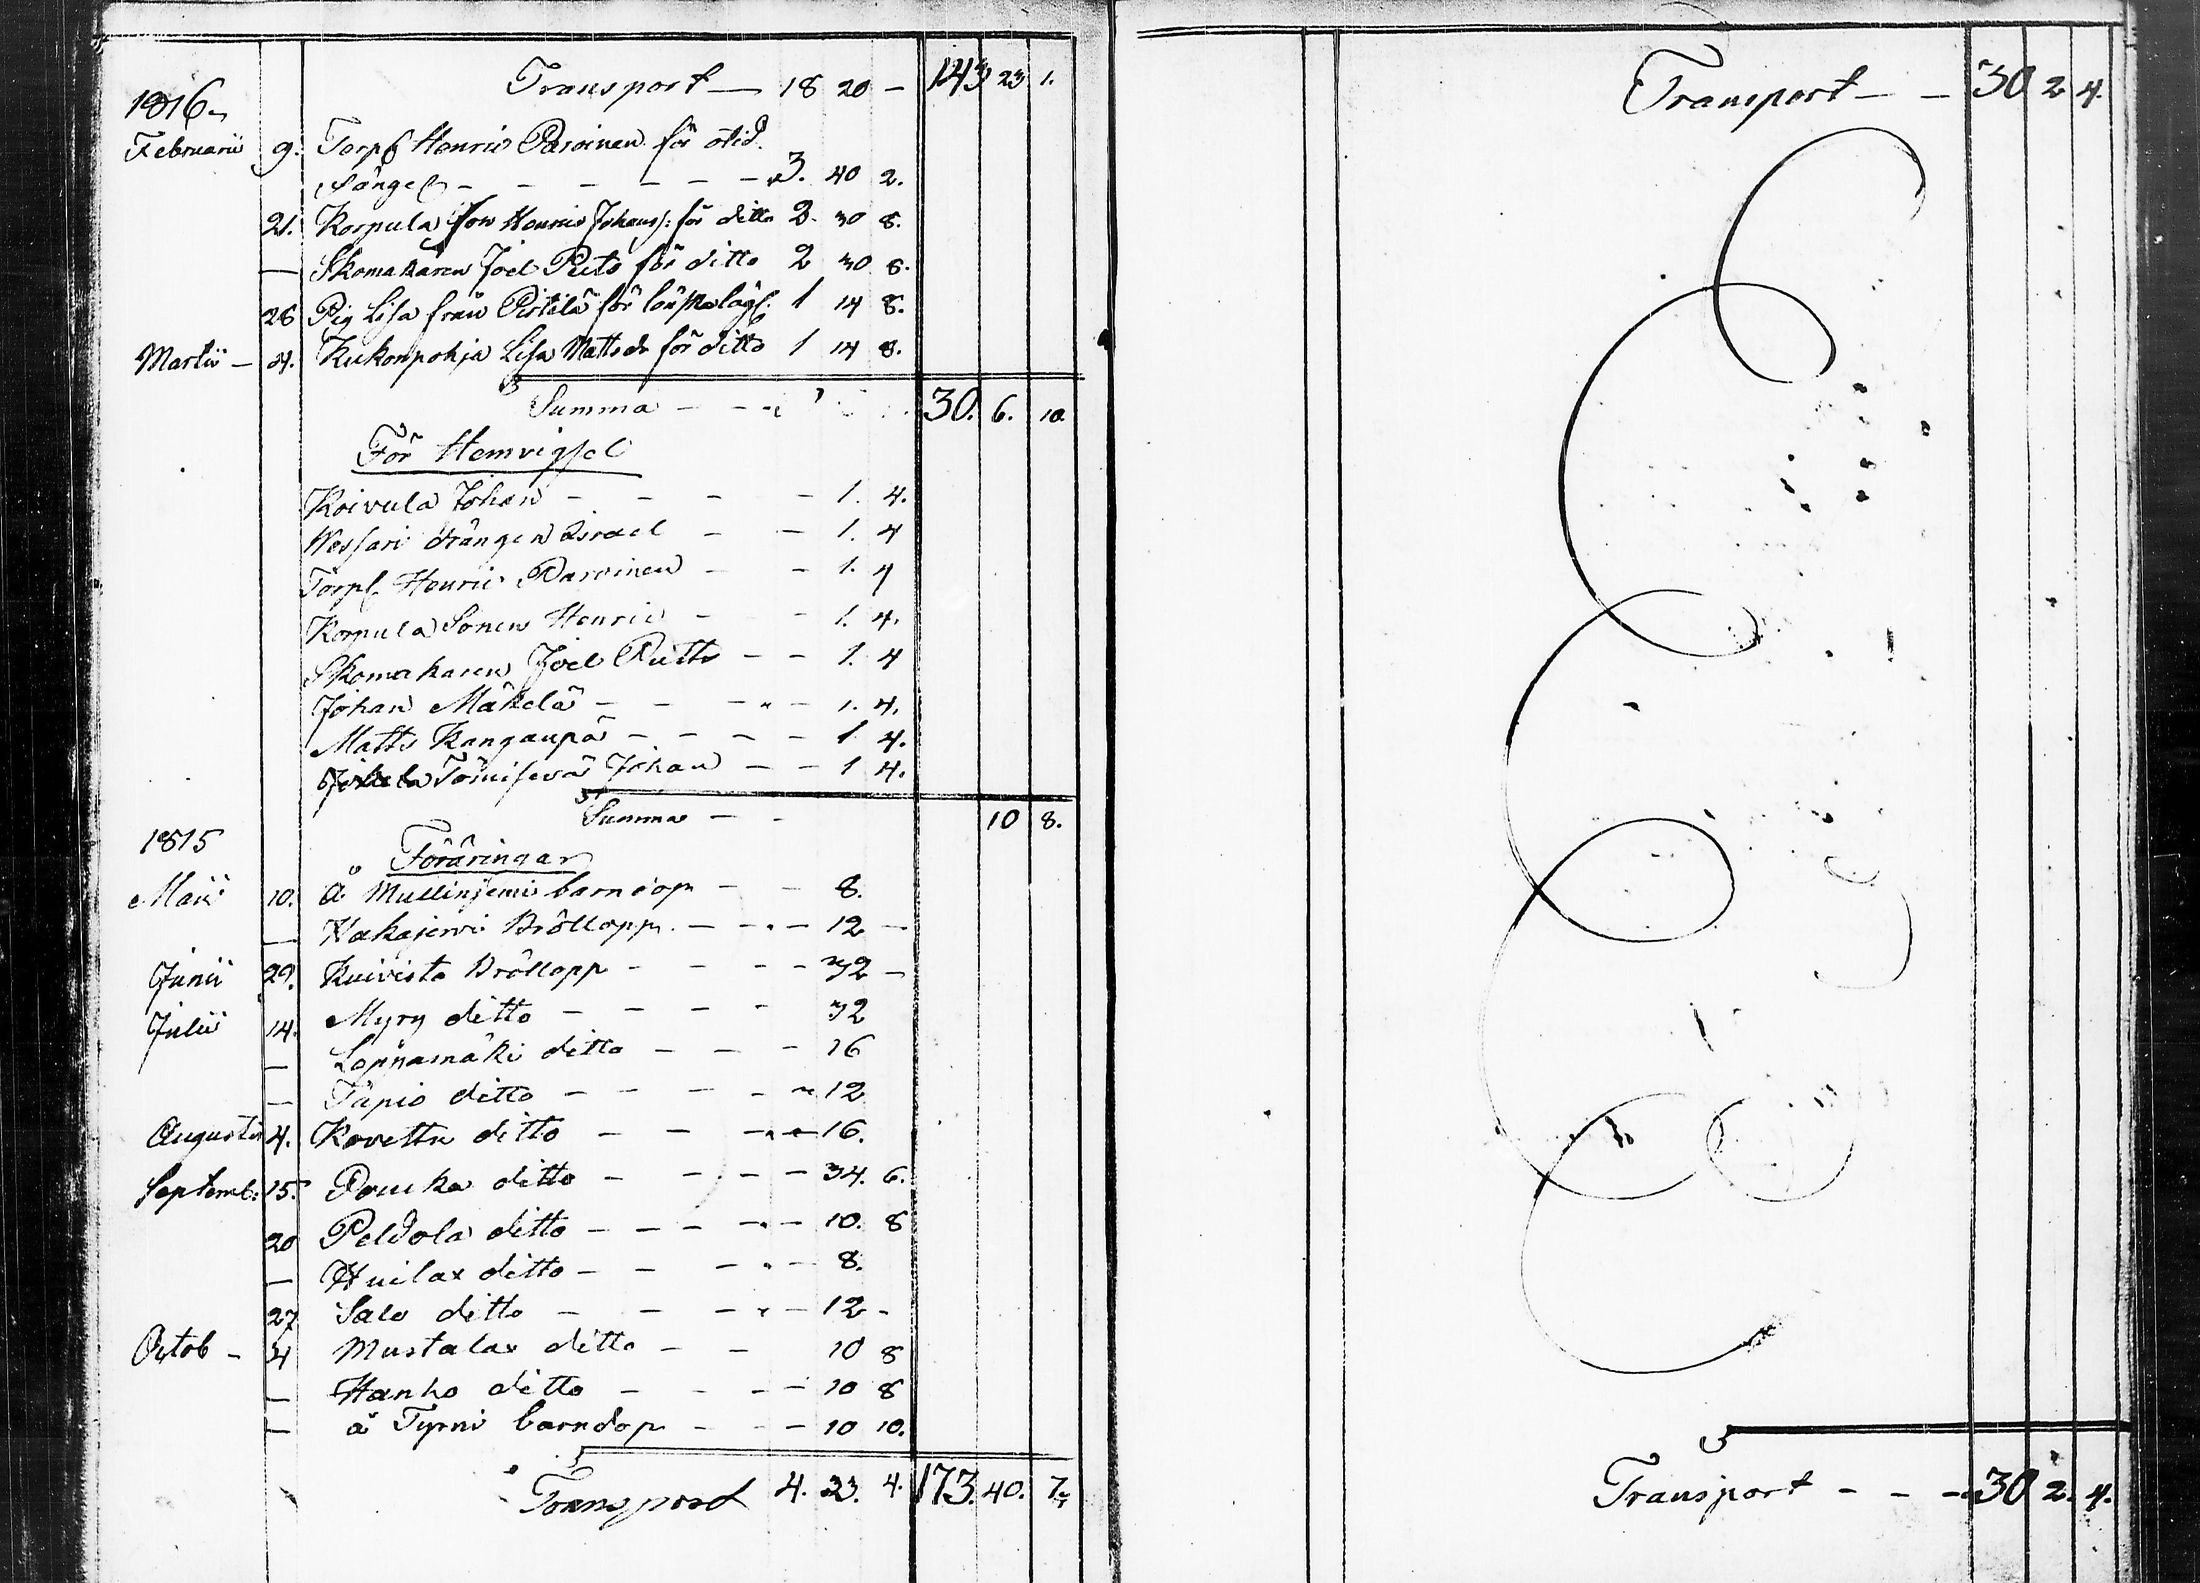 Transport — 18 20 — 143 23 1.
1816
Februarii 9. Torp. Henric Paroinen för otid.
Sänge - - - - - - 3. 40 2.
21. Korpula Son Henric Johans: för ditto 2. 30 8.
— Skomakaren Joel Putto för ditto 2 30 8.
28 Pig Lisa från Pistilä för 1 14 8.
Martii — 4. Kukonpohja Lisa Mattsdr för ditto 1 14 8.
Summa - - - 30. 6. 10
För Hemvigsel
Koivula Johan - - - - 1. 4.
Wessari drängen Israel - - 1. 4
Torp. Henric Paroinen - - 1. 4
Korpula Sonen Henric - - 1. 4.
Skomakaren Joel Putto - - 1. 4
Johan Mäkelä - - - - 1. 4.
Matts Kangaupä - - - - 1 4.
Johan - - 1 4.
Summa - - 10 8.
1815
Föräringar
Maii 10. å Mullinjemi barndop - - 8.
— Hakajervi Bröllopp. - - - 12 —
Junii 29. Kuivisto Bröllopp - - - - 32 —
Julii 14. Myry ditto - - - - 32
— Lopnamäki ditto - - - 16
— Tapio ditto - - - - 12
Augusti 4. Rovettu ditto - - - 16.
Septemb: 15. Poucka ditto - - - - 34. 6.
20 Peldola ditto - - - - - 10. 8
— Huilax ditto - - - - 8.
27 Salo ditto - - - - 12 -
Octob - 4 Mustalax ditto - - 10 8
— Hanko ditto - - - - 10 8
— å Tyrni barndop - - - 10 10.
Transport 4. 23. 4. 173. 40. 7.
Transport — — 30 2 4.
Transport - - - 30 2. 4.